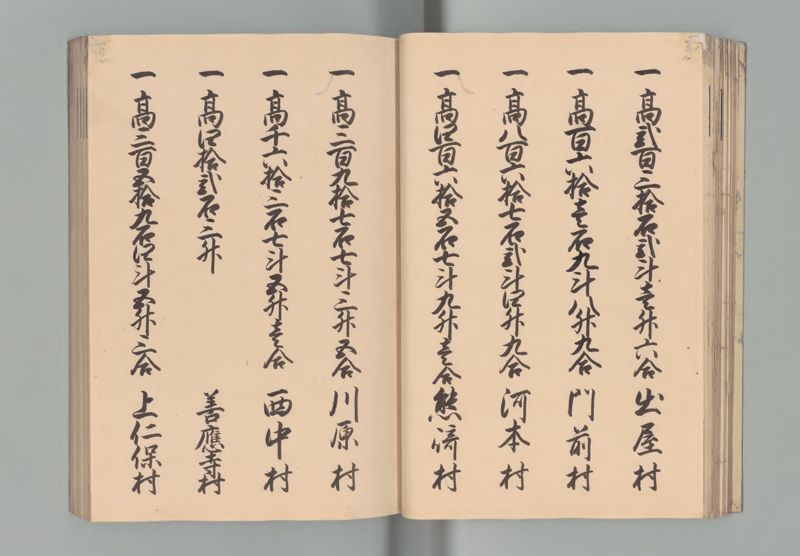 一 高弐百三拾石弐斗壱升六合 出屋村
一 高百六拾壱石九斗八升九合 門前村
一 高八百六拾七石弐斗四升九合 河本村
一 高四百六拾五石七斗九升壱合 熊崎村
一 高三百九拾七石七斗三升五合 川原村
一 高千六拾三石七斗五升壱合 西中村
一 高四拾弐石三升 善應寺村
一 高三百五拾九石四斗五升三合 上仁保村